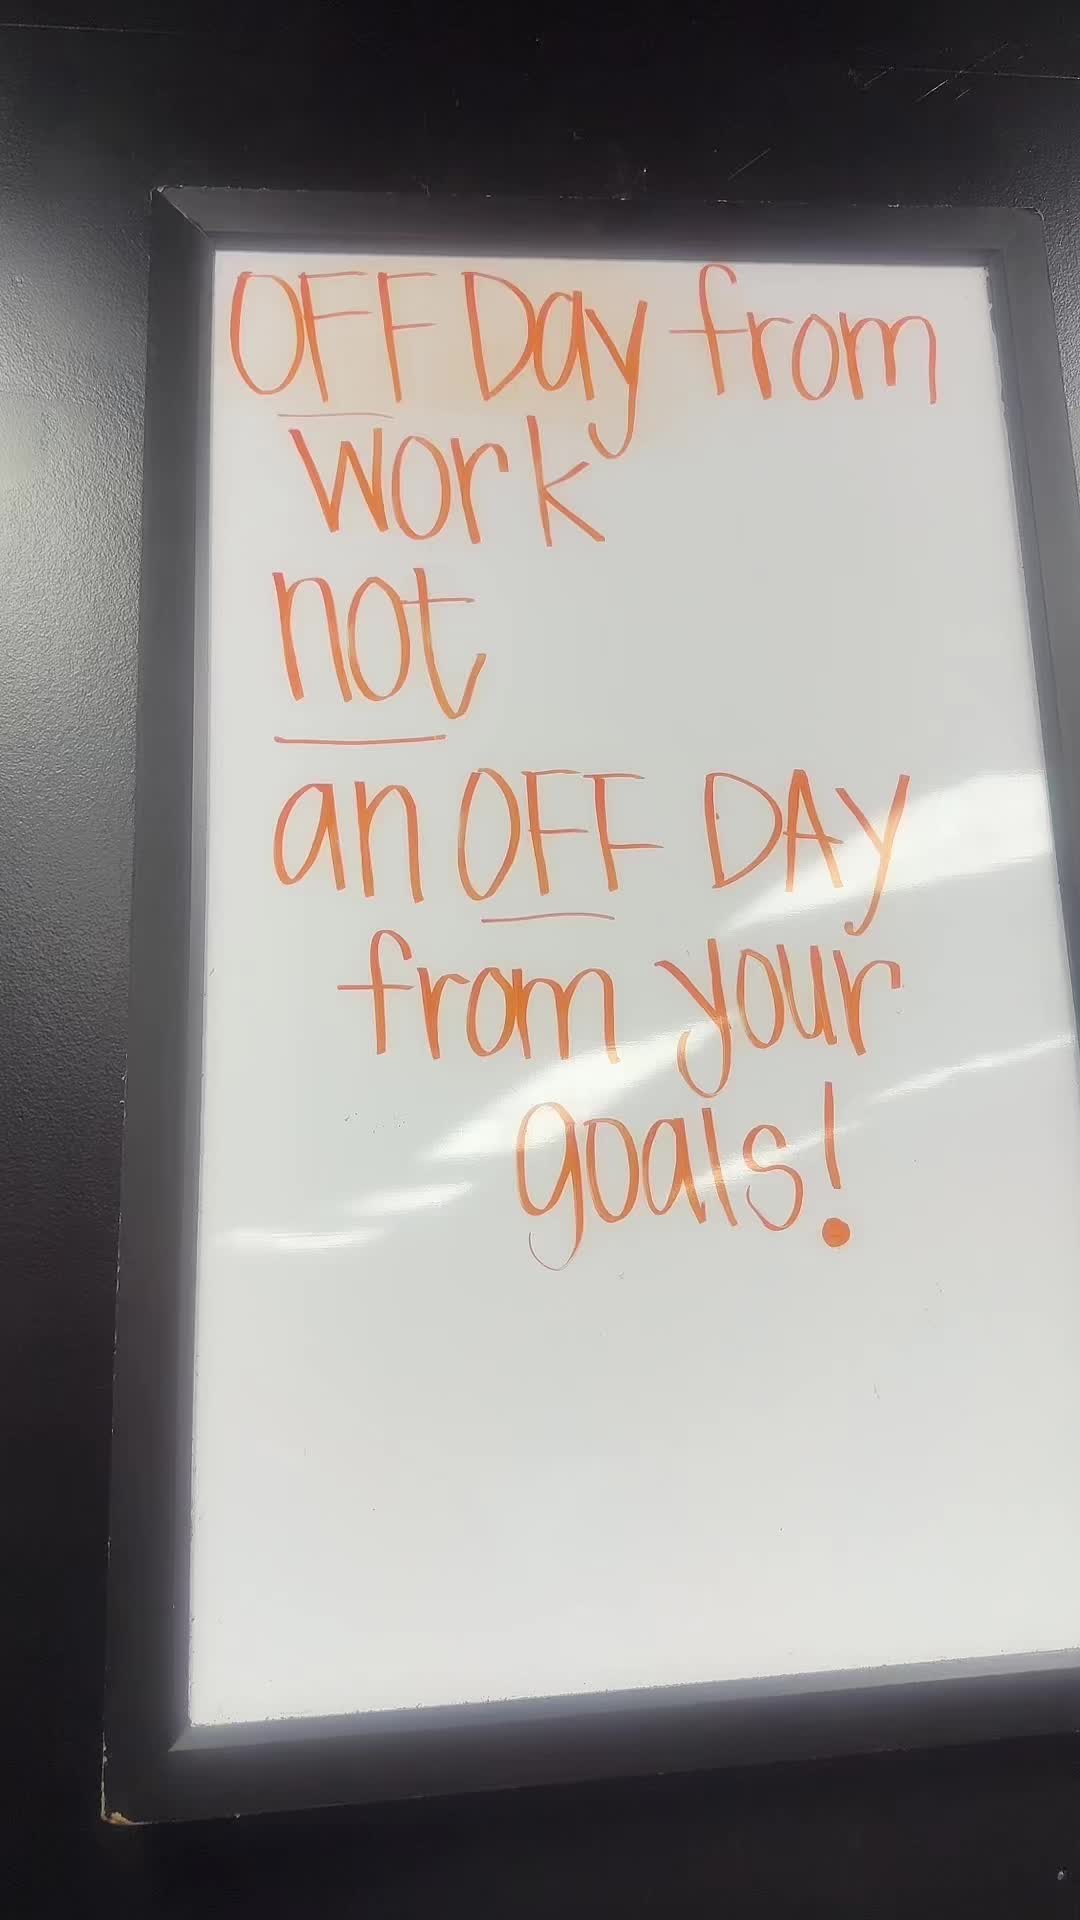 OFF Day from
work
not
an OFF DAY
from your
goals!